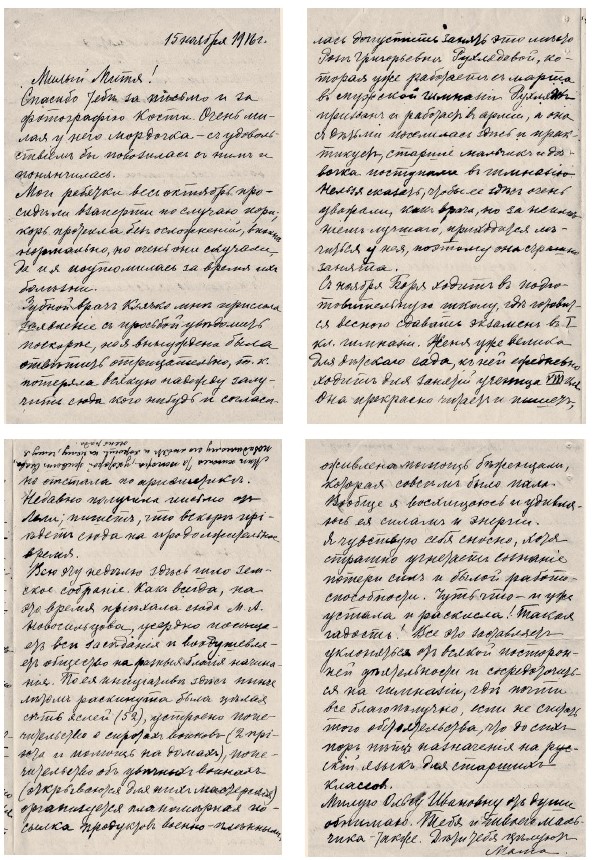 15 ноября 1916 г.
Милый Митя!
Спасибо тебе за письмо и за
фотографию Кости. Очень ми-
лая у него мордочка – съ удоволь-
ствіемъ бы повозилась съ нимъ и
понянчилась.
Мои ребятки весь октябрь про-
сидѣли взаперти по случаю кори,
корь прошла безъ осложненій, вполнѣ
нормально, но очень они скучали,
да и я поутомилась за время ихъ
болѣзни.
Зубной врачъ Клячко мнѣ прислала
заявленіе съ просьбой увѣдомить
поскорѣе, но я вынуждена была
отвѣтить отрицательно, т. к.
потеряла всякую надежду залу-
чить сюда кого нибудь и согласи-
лась допустить занять это мѣсто
Розѣ Григорьевнѣ Рухлядовой, ко-
торая уже работаетъ съ марта
въ мужской гимназіи.
призванъ и работаетъ въ арміи, а она
съ дѣтьми поселилась здѣсь и прак-
тикуетъ, старшіе мальчикъ и дѣ-
вочка поступили въ гимназію.
Нельзя сказать, чтобы ее здѣсь очень
уважали, какъ врача, но за неимѣ-
ніемъ лучшаго, приходится лѣ-
читься у ней, поэтому она страшно
занята.
Съ ноября Боря ходитъ въ подго-
товительную школу, гдѣ готовит-
ся весною сдавать экзаменъ въ I
кл. гимназіи. Женя уже велика
для дѣтскаго сада, къ ней ежедневно
ходитъ для занятій ученица VIII кл.
Она прекрасно читаетъ и пишетъ,
но отстала по ариѳметикѣ.
Недавно получила письмо отъ
Лели; пишетъ, что вскорѣ прі-
ѣдетъ сюда на продолжительное
время.
Всю эту недѣлю здѣсь было Зем-
ское собраніе. Какъ всегда, на
это время пріѣхала сюда М. А.
Новосильцова, усердно посѣща-
етъ всѣ засѣданія и воодушевля-
етъ общество на разныя благія начина-
нія. По ея иниціативѣ здѣсь нынѣ
лѣтомъ раскинута была цѣлая
сѣть яслей (52), устроено попе-
чительство о сиротахъ воиновъ (2 прі-
юта и помощь на домахъ), попе-
чительство объ увѣчныхъ воинахъ
(открываются для нихъ мастерскія),
организуется планомѣрная по-
сылка продуктовъ военно-плѣннымъ,
оживлена помощь бѣженцамъ,
которая совсѣмъ было пала.
Вообще я восхищаюсь и удивля-
юсь ея силамъ и энергіи.
Я чувствую себя сносно, хотя
страшно угнетаетъ сознаніе
потери силъ и былой работо-
способности. Чуть что – и уже
устала и раскисла! Такая
гадость! Все это заставляетъ
уклоняться отъ всякой посторон-
ней дѣятельности и сосредоточить-
ся на гимназіи, гдѣ почти
все благополучно, если не считать
того обстоятельства, что до сихъ
поръ нѣтъ назначенія на рус-
скій языкъ для старшихъ
классовъ.
Милую Ольгу Ивановну отъ души
обнимаю. Тебя и твоего маль-
чика – также. Дѣти тебя цѣлуютъ